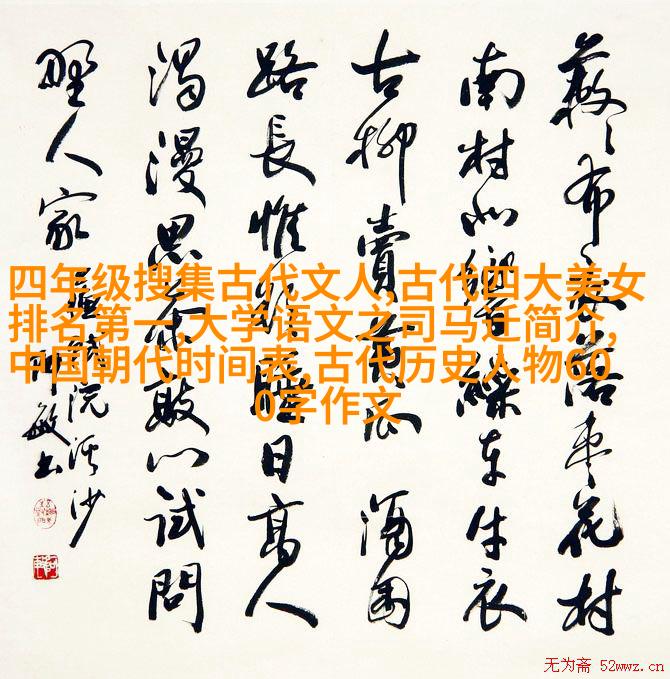 落枣花村
南村北響繰車牛衣
古柳賣黃瓜 酒困
路長惟欲睡日高人
渴漫思茶敲门試問
野人家
浣溪沙
敏书
四年级搜集古代文人,古代四大美女
排名第一,大学语文之司马迁简介,
中国朝代时间表,古代历史人物60
0字作文
无为斋 52wwz.cn